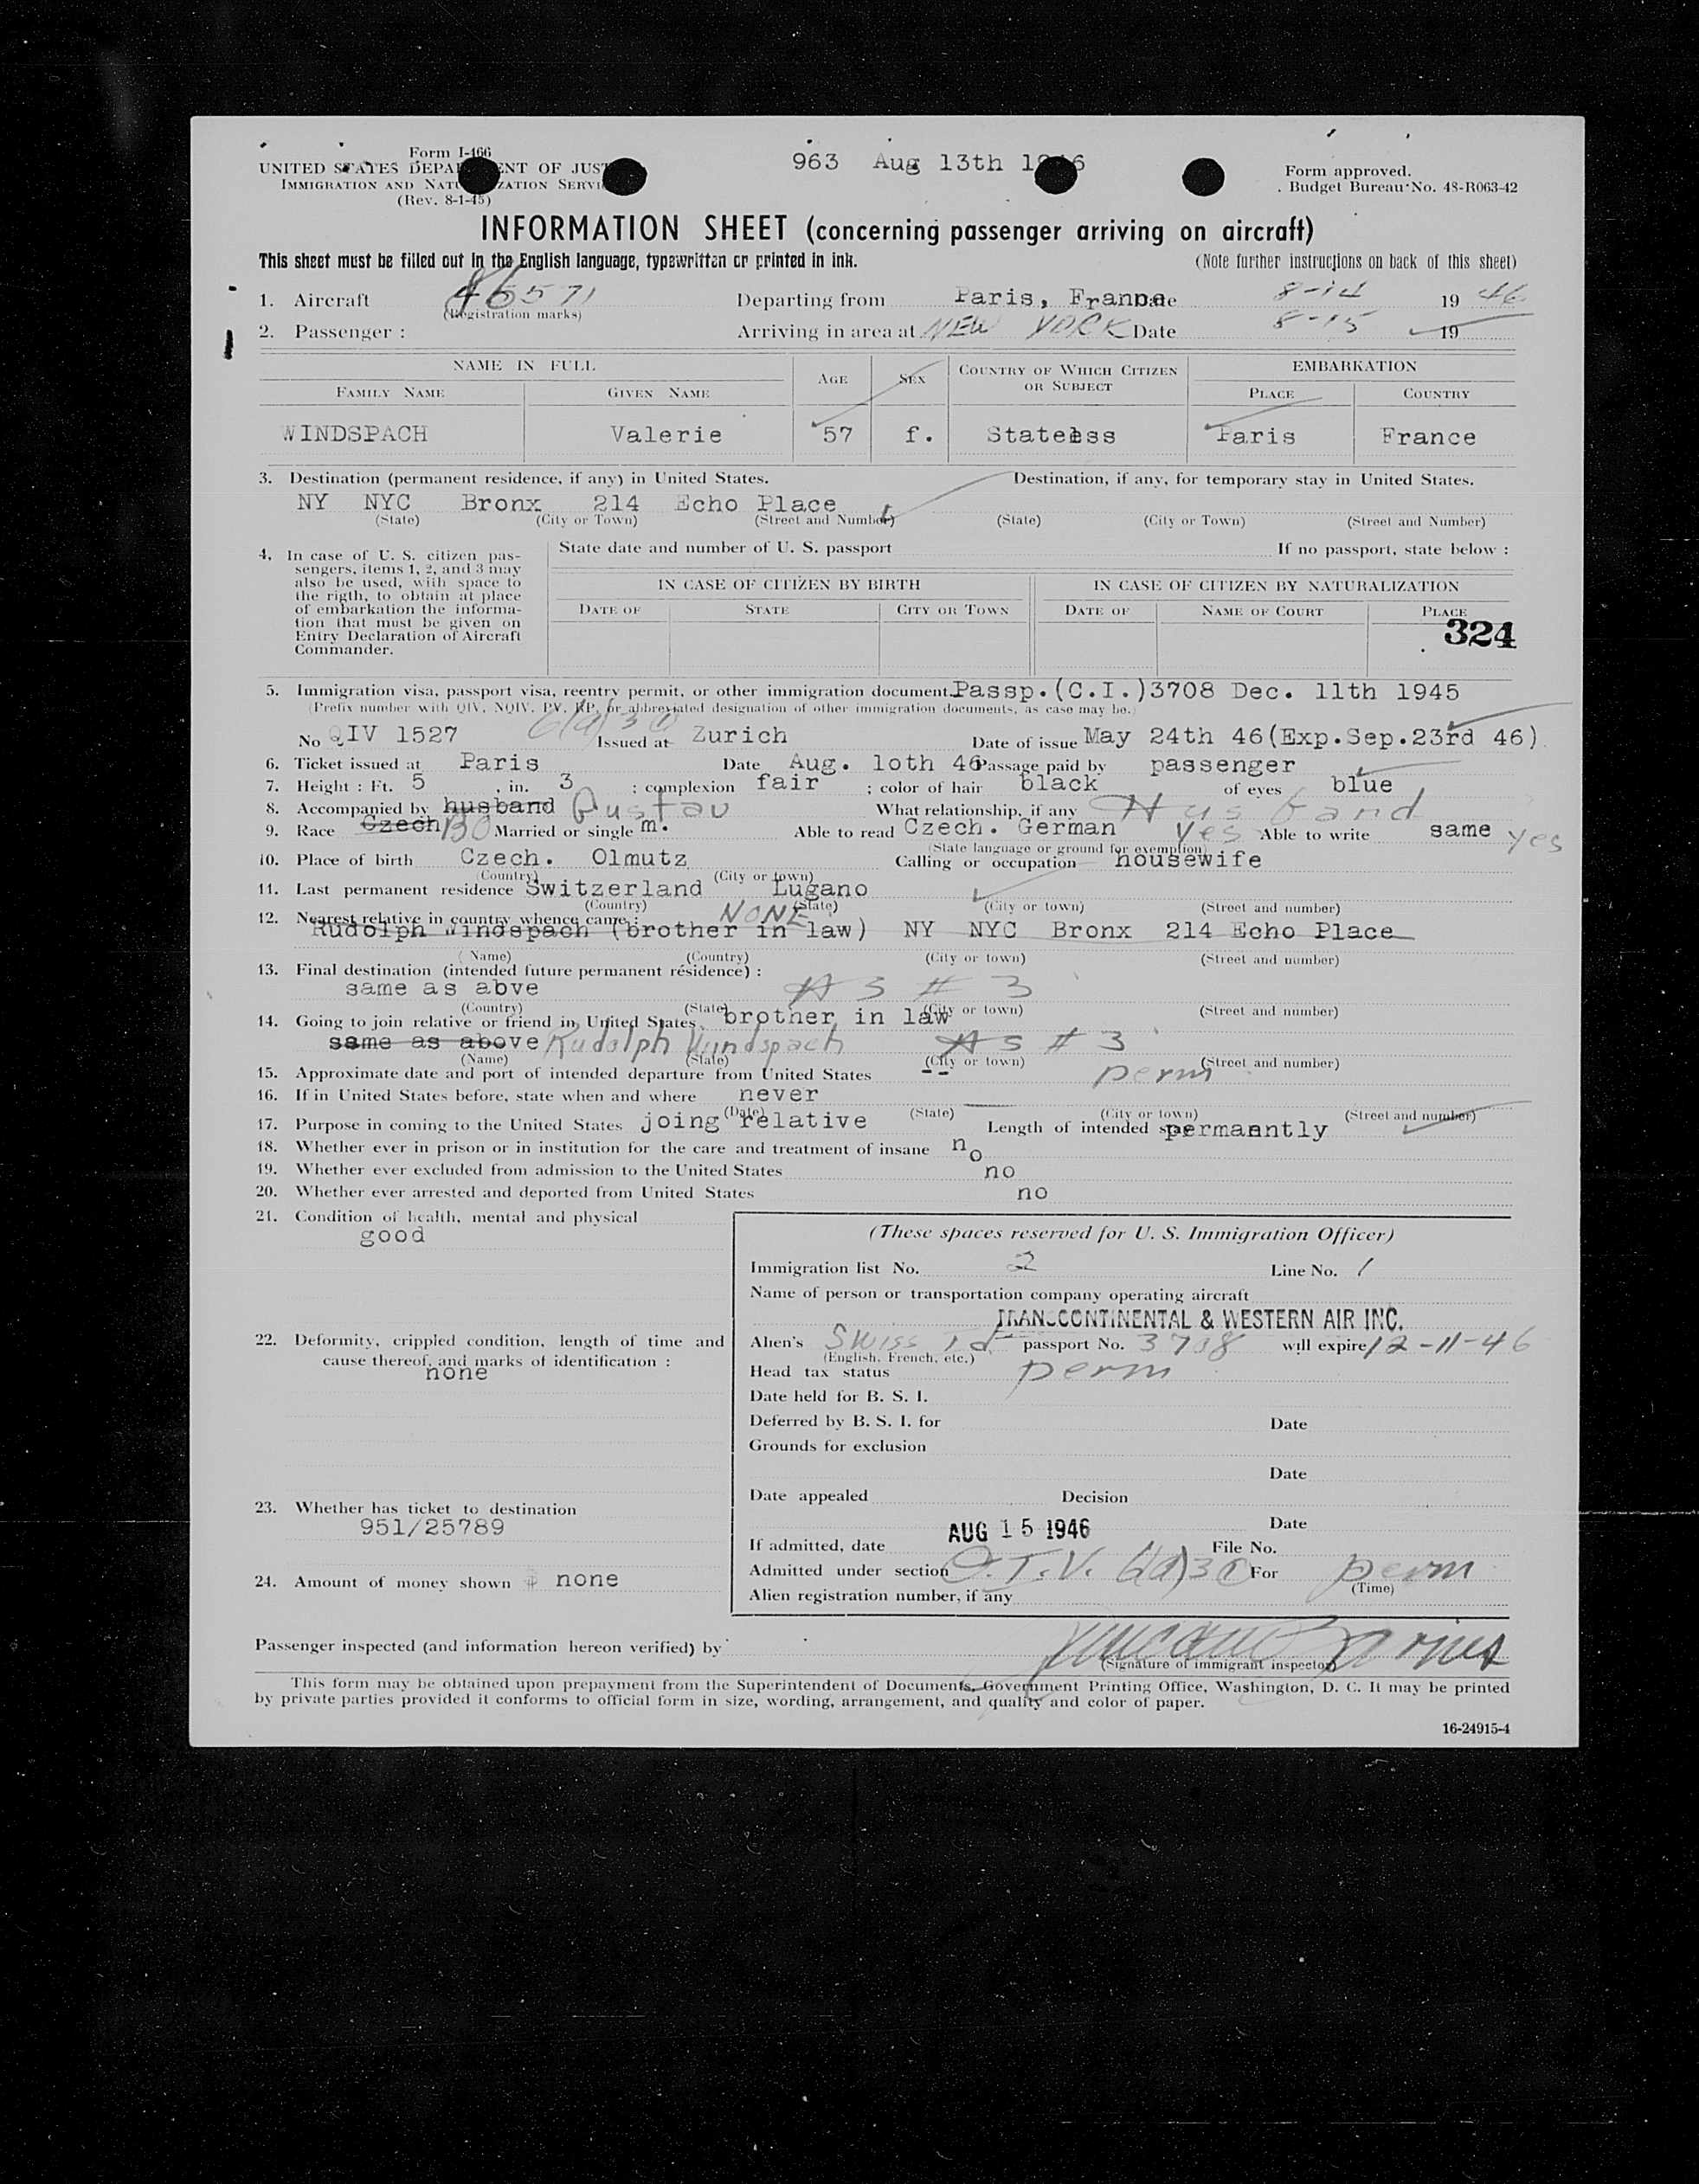 Form I-466
UNITED STATES DEPA ENT OF JUS
IMMIGRATION AND NATU ZATION SERVI
(Rev. 8-1-45)
963 Aug 13th 1 6
Form approved.
Budget Bureau No. 48-R063-42
INFORMATION SHEET (concerning passenger arriving on aircraft)
This sheet must be filled out in the English language, typewritten or printed in ink.
(Note further instructions on back of this sheet)
1. Aircraft 86571 Departing from Paris, France Date 8-14 1946
(Registration marks)
2. Passenger : Arriving in area at NEW YORK Date 8-15 19
NAME IN FULL AGE SEX COUNTRY OF WHICH CITIZEN OR SUBJECT EMBARKATION
FAMILY NAME GIVEN NAME PLACE COUNTRY
WINDSPACH Valerie 57 f. Stateless Paris France
3. Destination (permanent residence, if any) in United States. Destination, if any, for temporary stay in United States.
NY NYC Bronx 214 Echo Place
(State) (City or Town) (Street and Number) (State) (City or Town) (Street and Number)
4. In case of U. S. citizen pas-
sengers, items 1, 2, and 3 may
also be used, with space to
the rigth, to obtain at place
of embarkation the informa-
tion that must be given on
Entry Declaration of Aircraft
Commander.
State date and number of U. S. passport If no passport, state below :
IN CASE OF CITIZEN BY BIRTH IN CASE OF CITIZEN BY NATURALIZATION
DATE OF STATE CITY OR TOWN DATE OF NAME OF COURT PLACE
324
5. Immigration visa, passport visa, reentry permit, or other immigration document. Passp.(C.I.)3708 Dec. 11th 1945
(Prefix number with QIV, NQIV, PV, RP, or abbreviated designation of other immigration documents, as case may be.)
6(a)3(1)
No QIV 1527 Issued at Zurich Date of issue May 24th 46(Exp.Sep.23rd 46)
6. Ticket issued at Paris Date Aug. 1oth 46 Passage paid by passenger
7. Height : Ft. 5 , in. 3 ; complexion fair ; color of hair black of eyes blue
8. Accompanied by husband Gustav What relationship, if any Husband
9. Race Czech BO Married or single m. Able to read Czech. German Yes Able to write same yes
(State language or ground for exemption)
10. Place of birth Czech. Olmutz Calling or occupation housewife
(Country) (City or town)
11. Last permanent residence Switzerland Lugano
(Country) (State) (City or town) (Street and number)
12. Nearest relative in country whence came : NONE
Rudolph Windspach (brother in law) NY NYC Bronx 214 Echo Place
(Name) (Country) (City or town) (Street and number)
13. Final destination (intended future permanent résidence) :
same as abve AS # 3
(Country) (State) (City or town) (Street and number)
14. Going to join relative or friend in United States, brother in law
same as above Rudolph Windspach AS # 3
(Name) (State) (City or town) (Street and number)
15. Approximate date and port of intended departure from United States -- perm
16. If in United States before, state when and where never
(Date) (State) (City or town) (Street and number)
17. Purpose in coming to the United States joing relative Length of intended stay permanntly
18. Whether ever in prison or in institution for the care and treatment of insane no
19. Whether ever excluded from admission to the United States no
20. Whether ever arrested and deported from United States no
21. Condition of health, mental and physical
good
22. Deformity, crippled condition, length of time and
cause thereof, and marks of identification :
none
23. Whether has ticket to destination
951/25789
24. Amount of money shown $ none
(These spaces reserved for U. S. Immigration Officer)
Immigration list No. 2 Line No. 1
Name of person or transportation company operating aircraft
TRANSCONTINENTAL & WESTERN AIR INC.
Alien's Swiss Id passport No. 3708 will expire 12-11-46
(English, French, etc.)
Head tax status perm
Date held for B. S. I.
Deferred by B. S. I. for Date
Grounds for exclusion
Date
Date appealed Decision
Date
If admitted, date AUG 15 1946 File No.
Admitted under section Q.I.V. 6(a)3(1) For perm
(Time)
Alien registration number, if any
Passenger inspected (and information hereon verified) by
(Signature of immigrant inspector)
This form may be obtained upon prepayment from the Superintendent of Documents, Government Printing Office, Washington, D. C. It may be printed
by private parties provided it conforms to official form in size, wording, arrangement, and quality and color of paper.
16-24915-4